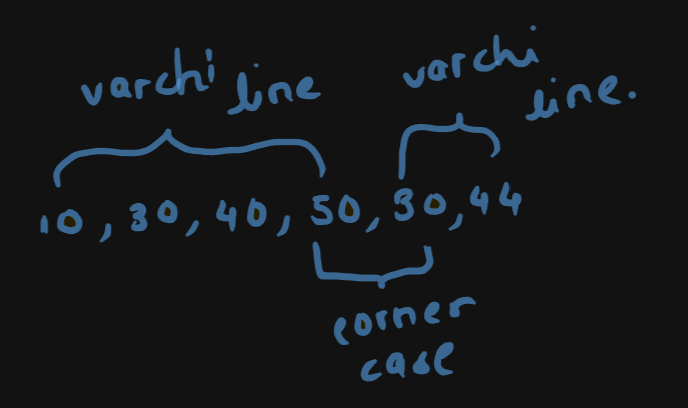 varchi line
varchi line.
10, 30, 40, 50, 30, 44
corner case